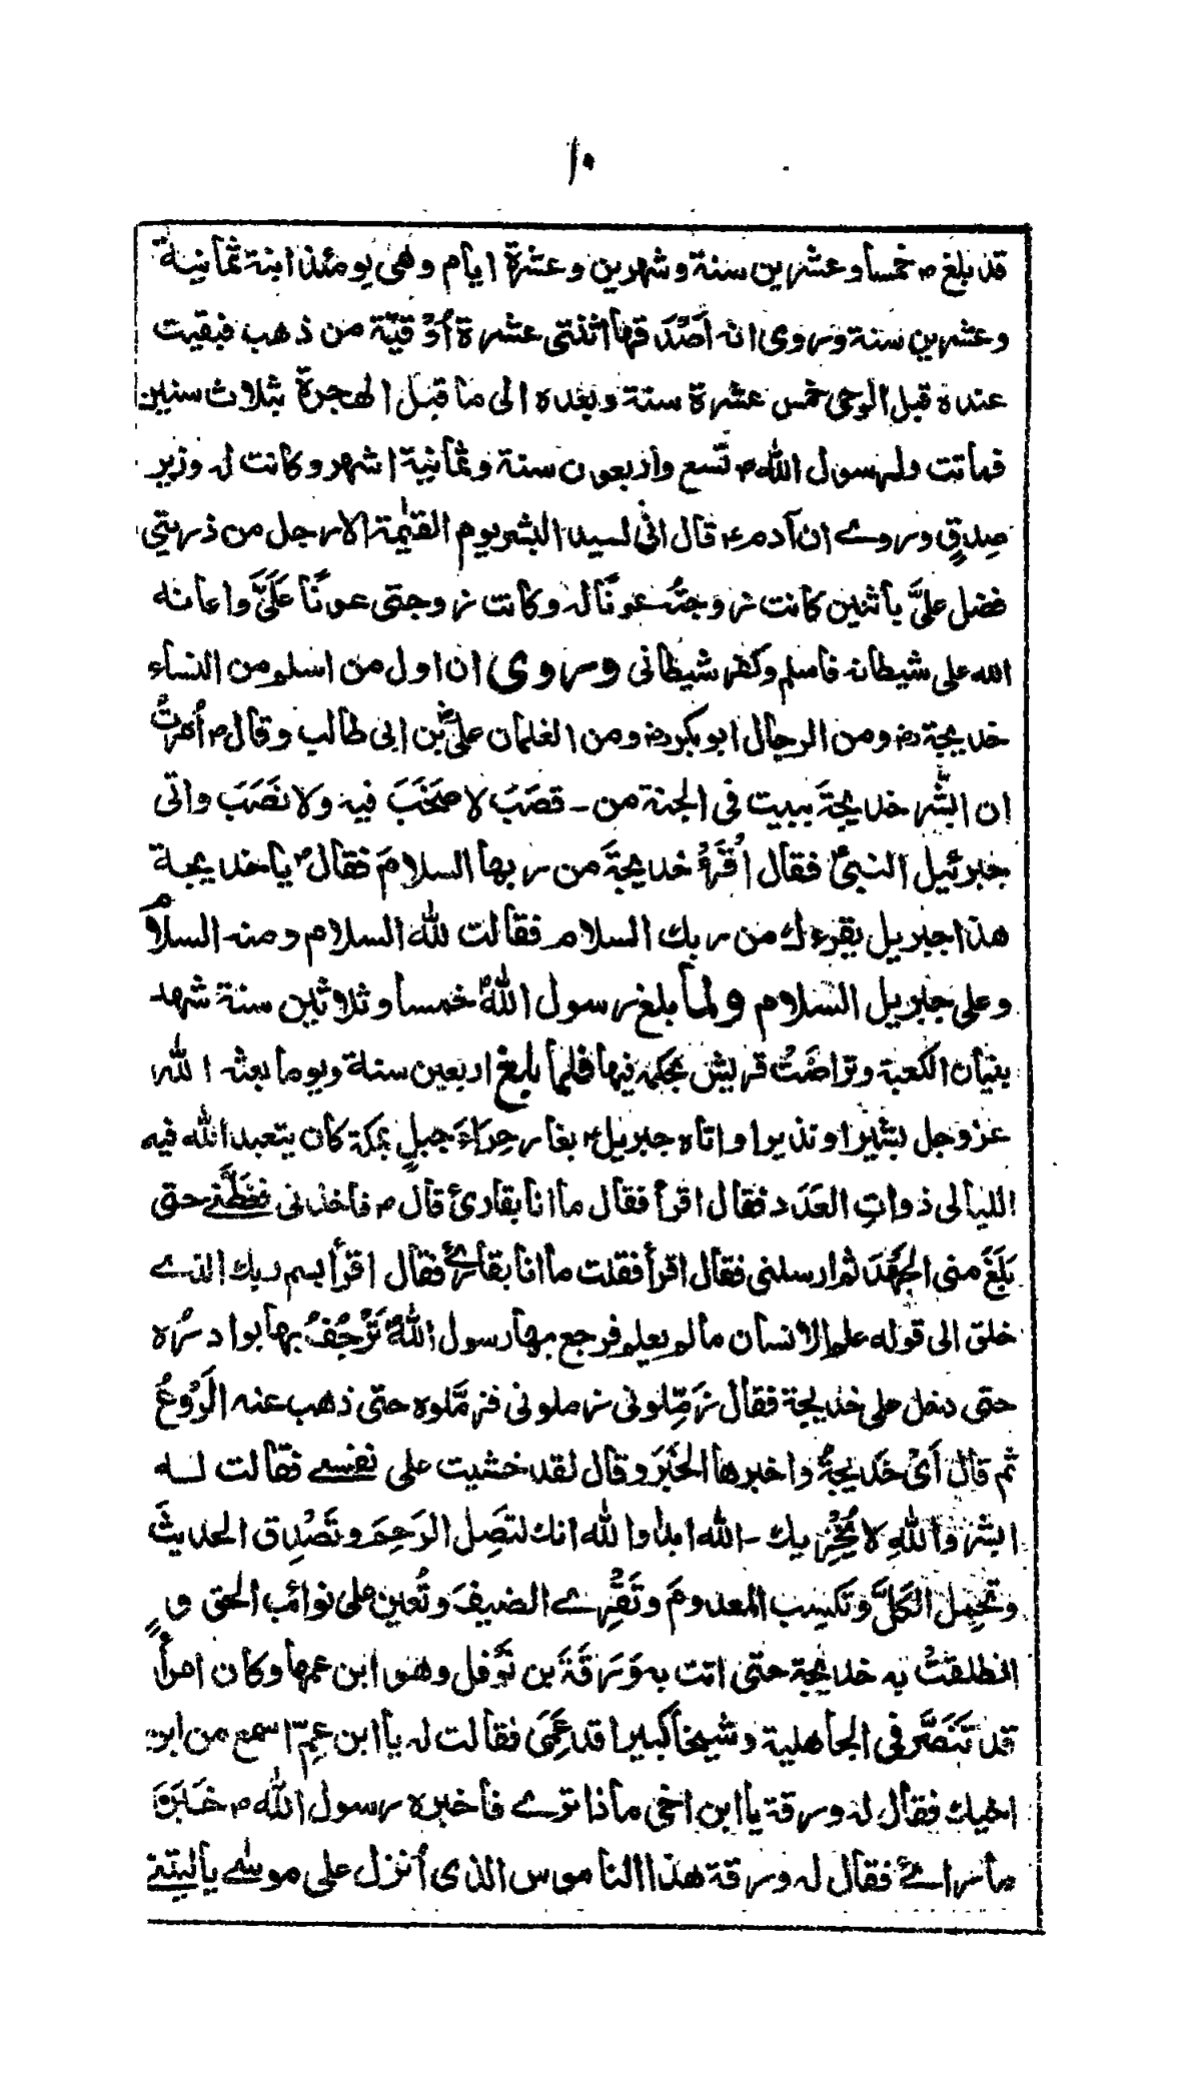 ١٠
قد بلغ ص خمسا وعشرين سنة وشهرين وعشرة ايام وهى يومئذ ابنة ثمانية
وعشرين سنة وروى انه اَصْدَقها اثنتى عشرة اُوْقيّة من ذهب فبقيت
عنده قبل الوحى خمس عشرة سنة وبعده الى ما قبل الهجرة بثلاث سنين
فماتت ولرسول الله ص تسع واربعون سنة وثمانية اشهر وكانت له وزير
صِدقٍ وروے ان آدم ع قال انّى لسيد البشر يوم القيٰمة الا رجل من ذريتي
فضل علىَّ باثنين كانت زوجتُه عونًا له وكانت زوجتى عونًا عَلَىَّ واعانه
الله على شيطانه فاسلم وكفر شيطانى وروى ان اول من اسلم من النساء
خديجة رض ومن الرجال ابوبكر رض ومن الغلمان علىّ رض بن ابى طالب وقال ص اُمرتُ
ان ابشّر خديجةَ ببيت فى الجنة من - قصَبَ لا صَخَبَ فيه ولا نصَبَ واتى
جبرئيل النبىّ ص فقال اُقْرَءْ خديجةَ من ربها السلامَ فقال ص يا خديجة
هذا جبريل يقرءك من ربك السلام فقالت لله السلام ومنه السلام
وعلى جبريل السلام ولما بلغ رسول الله ص خمسا وثلاثين سنة شهد
بنيان الكعبة وتراضَتْ قريش بحكمه فيها فلما بلغ اربعين سنة ويوما بعثه الله
عز وجل بشيرا ونذيرا واتاه جبريل ع بغار حِراءَ جبلٍ بمكة كان يتعبد الله فيه
الليالى ذواتِ العَدَد فقال اقرأ فقال ما انا بقارئ قال ص فاخذنى فغَطَّنے حتى
بَلَغَ منى الجَهْدَ ثم ارسلنى فقال اقرأ فقلت ما انا بقارئے فقال اقرأ بسم ربك الذے
خلق الى قوله علم الانسان ما لم يعلم فرجع بها رسول الله ص تَرْجُفُ بها بوادرُه
حتى دخل على خديجة فقال زَمّلونى زملونى فزمّلوه حتى ذهب عنه الرَوْعُ
ثم قال اَىْ خديجةُ واخبرها الخَبَرَ وقال لقد خشيت على نفسے فقالت له
ابشر فوَاللهِ لا يُخْزِيك - الله ابدا والله انك لتَصِل الرَحِمَ وتَصْدِق الحديثَ
وتحمِل الكَلَّ وتكسِب المعدومَ وتَقْرِے الضيفَ وتُعين على نوائب الحق و
انطلقتْ به خديجة حتى اتت به وَرَقَةَ بن نَوْفل وهو ابن عمها وكان امرأً
قد تَنَصَّرَ فى الجاهلية وشيخا كبيرا قد عَمِىَ فقالت له يا ابن عمِّ اسمع من ابن
اخيك فقال له ورقة يا ابن اخى ماذا ترے فاخبره رسول الله ص خَبَرَ
ما رائے فقال له ورقة هذا الناموس الذى اُنزل على موسٰے يا ليتنے